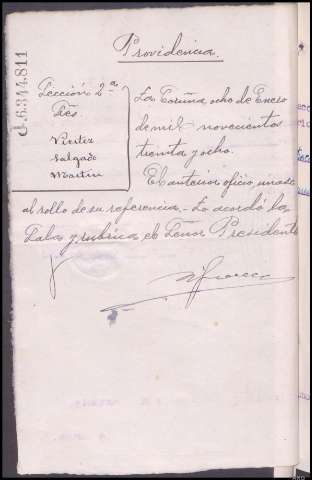 Providencia.
J.6.344.811
Sección 2ª
Sres.
Viritez
Salgado
Martin
La Coruña ocho de Enero
de mil novecientos
treinta y ocho.
El anterior oficio unase
al rollo de su referencia - Lo acordó la
Sala y rubrica el Señor Presidente